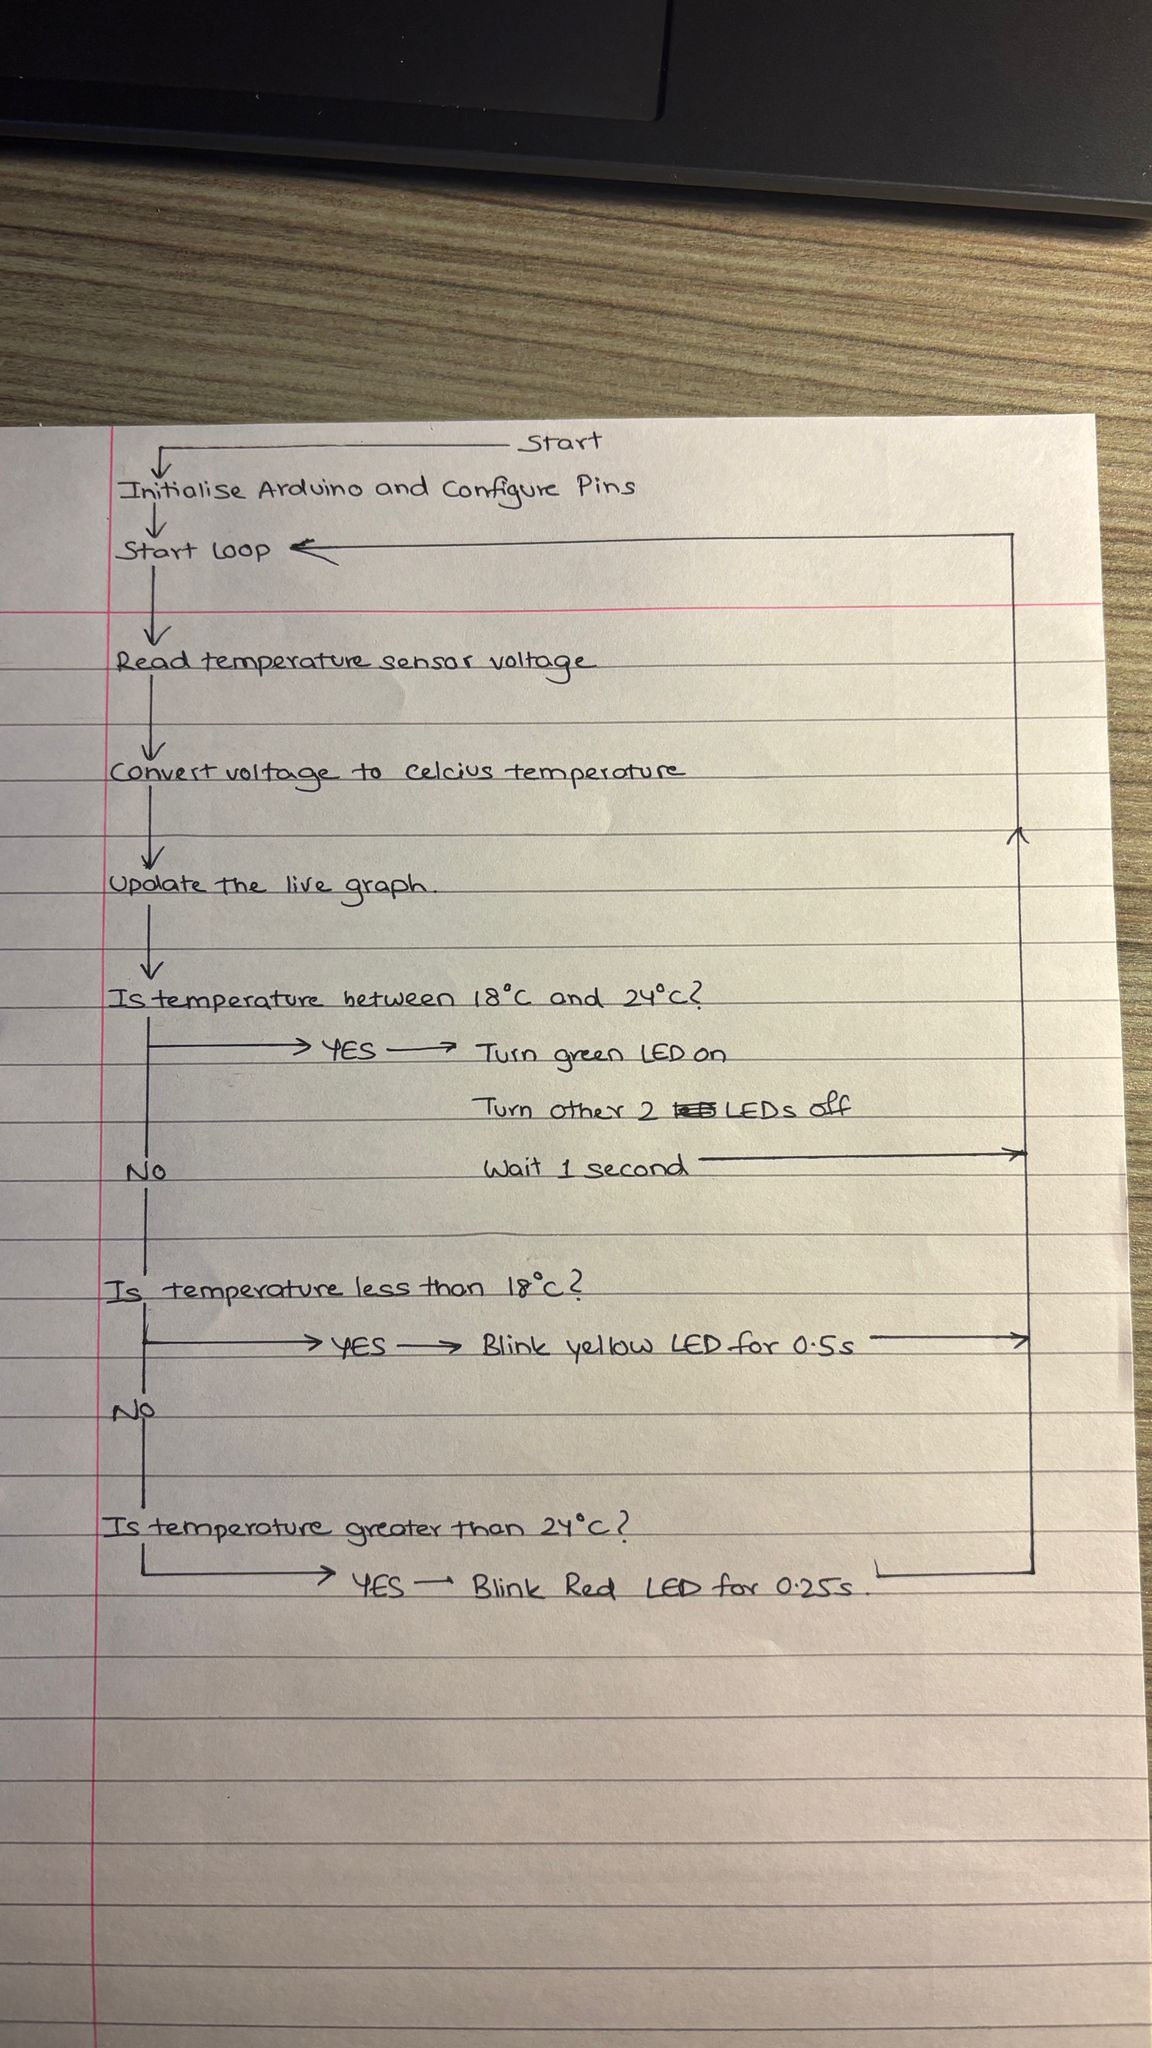 Start
Initialise Arduino and Configure Pins
Start Loop
Read temperature sensor voltage
Convert voltage to celcius temperature
Update the live graph.
Is temperature between 18°C and 24°C?
YES Turn green LED on
Turn other 2 LEDs off
No Wait 1 second
Is temperature less than 18°C?
YES Blink yellow LED for 0.5s
No
Is temperature greater than 24°C?
YES Blink Red LED for 0.25s.